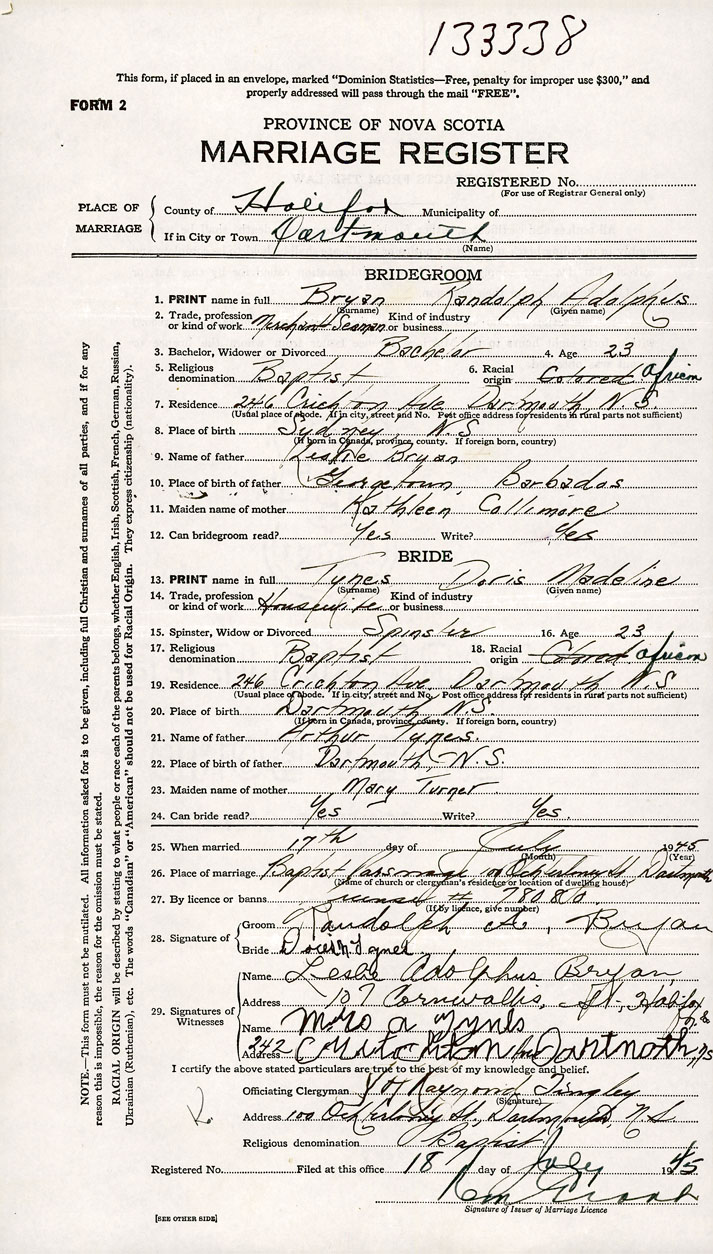 133338
This form, if placed in an envelope, marked "Dominion Statistics—Free, penalty for improper use $300," and
properly addressed will pass through the mail "FREE".
FORM 2
PROVINCE OF NOVA SCOTIA
MARRIAGE REGISTER
REGISTERED No.
(For use of Registrar General only)
PLACE OF MARRIAGE
County of Halifax Municipality of
If in City or Town Dartmouth
(Name)
BRIDEGROOM
1. PRINT name in full Bryan Randolph Adolphus
(Surname) (Given name)
2. Trade, profession or kind of work Merchant Seaman Kind of industry or business
3. Bachelor, Widower or Divorced Bachelor 4. Age 23
5. Religious denomination Baptist 6. Racial origin Colored African
7. Residence 246 Crichton Ave. Dartmouth N.S.
(Usual place of abode. If in city, street and No. Post office address for residents in rural parts not sufficient)
8. Place of birth Sydney, N.S.
(If born in Canada, province, county. If foreign born, country)
9. Name of father Leslie Bryan
10. Place of birth of father Georgetown, Barbados
11. Maiden name of mother Kathleen Collimore
12. Can bridegroom read? Yes Write? Yes
BRIDE
13. PRINT name in full Tynes Doris Madeline
(Surname) (Given name)
14. Trade, profession or kind of work Housewife Kind of industry or business
15. Spinster, Widow or Divorced Spinster 16. Age 23
17. Religious denomination Baptist 18. Racial origin Colored African
19. Residence 246 Crichton Ave. Dartmouth N.S
(Usual place of abode. If in city, street and No. Post office address for residents in rural parts not sufficient)
20. Place of birth Dartmouth N.S.
(If born in Canada, province, county. If foreign born, country)
21. Name of father Arthur Tynes.
22. Place of birth of father Dartmouth, N.S.
23. Maiden name of mother Mary Turner
24. Can bride read? Yes Write? Yes.
25. When married 17th day of July 1945
(Month) (Year)
26. Place of marriage Baptist Parsonage Ochterloney St, Dartmouth
(Name of church or clergyman's residence or location of dwelling house)
27. By licence or banns license # 78086
(If by licence, give number)
28. Signature of
Groom Randolph A, Bryan
Bride Doris M. Tynes.
29. Signatures of Witnesses
Name Leslie Adolphus Bryan
Address 107 Cornwallis, St., Halifax N.S
Name Mrs a Tynes
Address 242 Dartmoth, NS
I certify the above stated particulars are true to the best of my knowledge and belief.
Officiating Clergyman Raymond Tingley
(Signature)
Address 100 Ochterloney St., Dartmouth, N.S.
Religious denomination Baptist
Registered No. Filed at this office 18 day of July 1945
Signature of Issuer of Marriage Licence
[SEE OTHER SIDE]
NOTE.—This form must not be mutilated. All information asked for is to be given, including full Christian and surnames of all parties, and if for any
reason this is impossible, the reason for the omission must be stated.
RACIAL ORIGIN will be described by stating to what people or race each of the parents belongs, whether English, Irish, Scottish, French, German, Russian,
Ukrainian (Ruthenian), etc. The words "Canadian" or "American" should not be used for Racial Origin. They express citizenship (nationality).